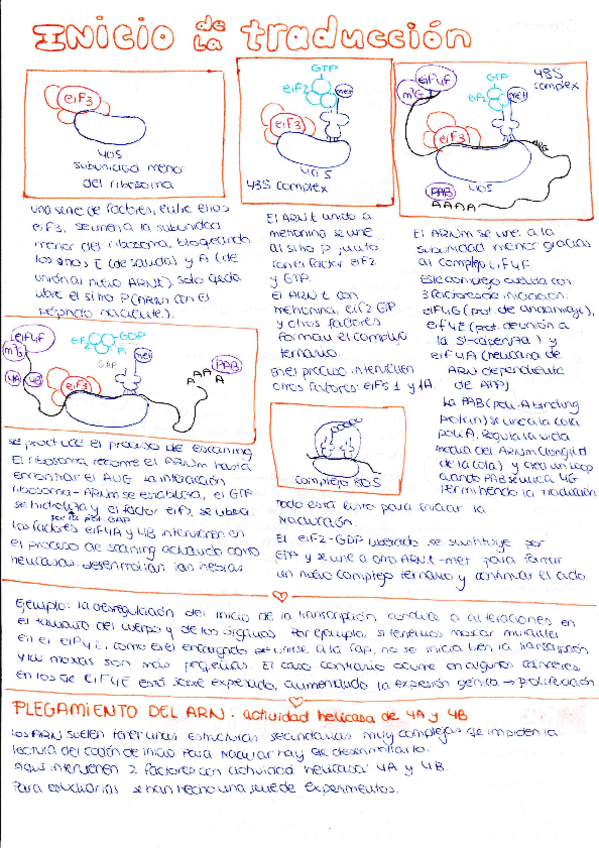 INICIO DE LA traducción
eiF3
40S
subunidad menor
del ribosoma
GTP
eiF2
met
eiF3
40S
43S complex
eiF4F
m7G
GTP
eiF2
met
48S
complex
eiF3
AUG
PAB
40S
AAAA
una serie de factores, entre ellos
eiF3, se unen a la subunidad
menor del ribosoma, bloqueando
los sitios E (de salida) y A (de
unión al nuevo ARNt), solo queda
libre el sitio P (ARNt con el
péptido naciente).
El ARNt unido a
metionina se une
al sitio P junto
con el factor eiF2
y GTP.
El ARNt con
metionina, eiF2 GTP
y otros factores
forman el complejo
ternario.
En el proceso intervienen
otros factores: eiFs 1 y 1A.
El ARNm se une a la
subunidad menor gracias
al complejo eiF4F.
Este complejo cuenta con
3 factores de iniciación:
eiF4G (prot. de andamiaje),
eiF4E (prot. de unión a
la 5'-caperuza) y
eiF4A (helicasa de
ARN dependiente
de ATP)
La PAB (poli-A binding
protein) se une a la cola
poli A. Regula la vida
media del ARNm (longitud
de la cola) y crea un loop
cuando PAB se une a 4G
permitiendo la traducción
eiF4F
m7G
4A
4B
eiF2
GDP
Pi
GAP
met
eiF3
AAA
PAB
se produce el proceso de escaning
El ribosoma recorre el ARNm hasta
encontrar el AUG. La interacción
ribosoma-ARNm se estabiliza, el GTP
se hidroliza y el factor eiF2 se libera.
por la prot. GAP
Los factores eiF4A y 4B intervienen en
el proceso de scaning actuando como
helicasas: desenrollan las hebras.
complejo 80S
Todo está listo para iniciar la
traducción.
El eiF2-GDP liberado se sustituye por
GTP y se une a otro ARNt-met para formar
un nuevo complejo ternario y continuar el ciclo.
Ejemplo: la desregulación del inicio de la transcripción conduce a alteraciones en
el tamaño del cuerpo y de los órganos. Por ejemplo, si tenemos moscas mutantes
en el eiF4E, como es el encargado de unirse a la cap, no se inicia bien la transcripción
y las moscas son más pequeñas. El caso contrario ocurre en algunos cánceres,
en los que eiF4E está sobre expresado, aumentando la expresión génica → proliferación
PLEGAMIENTO DEL ARN: actividad helicasa de 4A y 4B
Los ARN suelen tener unas estructuras secundarias muy complejas que impiden la
lectura del codón de inicio. Para traducir hay que desenrollarlo.
Aquí intervienen 2 factores con actividad helicasa: 4A y 4B.
Para estudiarlas se han hecho una serie de experimentos.